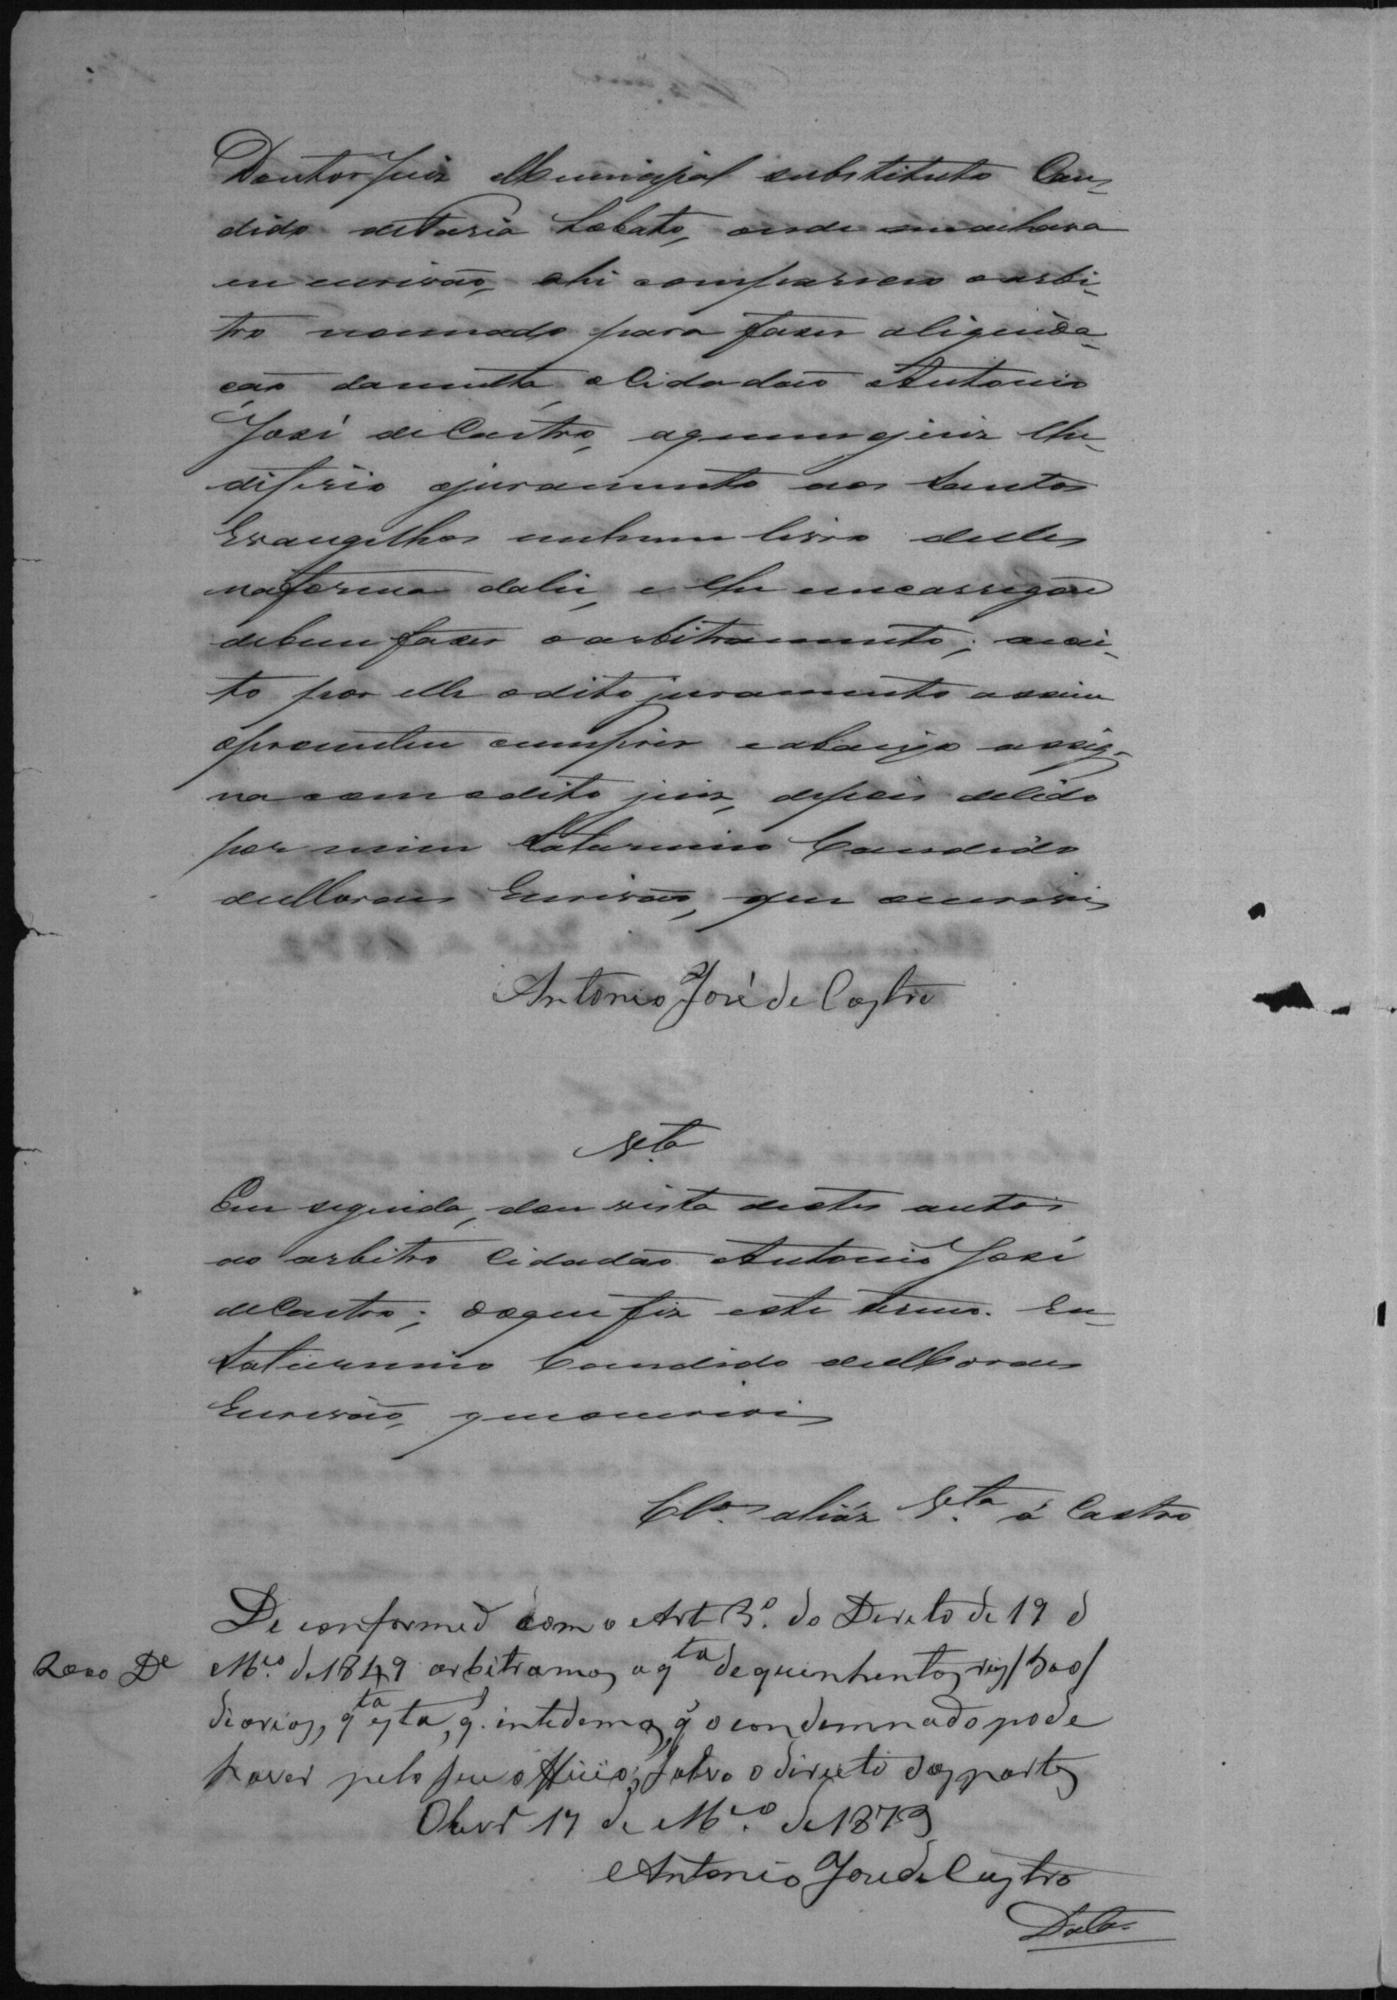 Doutor Juiz Municipal substituto Can-
dido de Faria Lobato, onde me achava
eu escrivão, ahi compareceo o arbi-
tro nomeado para faser a liquida-
ção da multa, o Cidadão Antonio
José de Castro, a quem o juiz lhe
diferio o juramento aos Santos
Evangelhos em hum livro delles
na forma da lei, e lhe encarregou
de bem faser o arbitramento; acei-
to por elle o dito juramento assim
o prometeu cumprir e abaixo assig-
na com o dito juiz, depois de lido
por mim Saturnino Candido
de Moraes Escrivão, que o escrivi
Antonio José de Castro
V.ta
Em seguida, dou vista destes autos
ao arbitro Cidadão Antonio José
de Castro; do que fiz este termo. Eu
Saturnino Candido de Moraes
Escrivão, que o escrivi
Cl.os aliás V.ta á Castro
De conformed com o Art 3.º do Dereto de 19 d
M.ço de 1849 arbitramos a q.ta de quinhentos reis /500/
diarios, q.ta esta, q. intedemos, q̃ o condemnado pode
haver pelo seu officio; salvo o direito das partes
17 de M.ço de 1873
Antonio José de Castro
Data